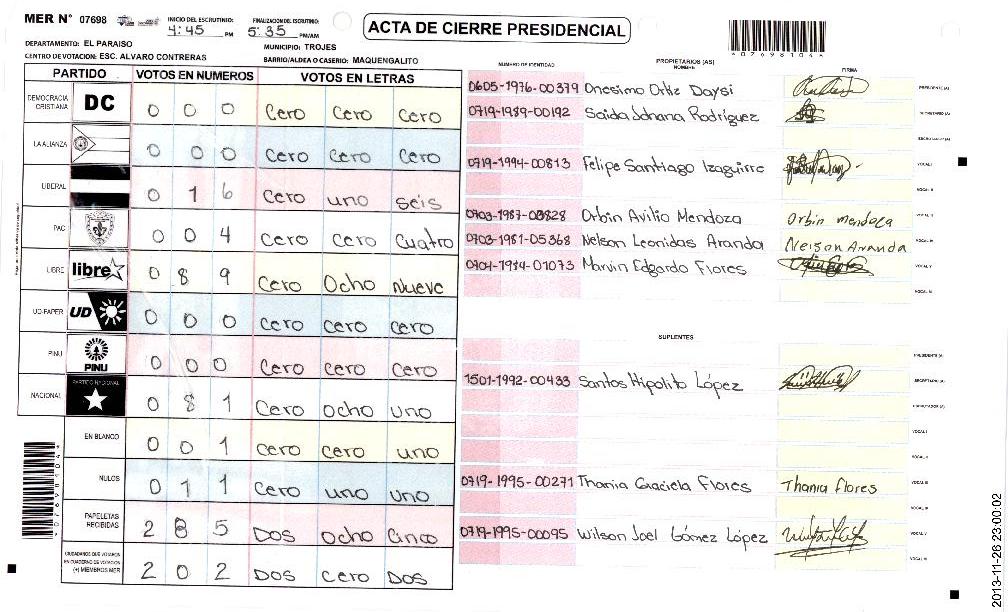 MER N° 07698
INICIO DEL ESCRUTINIO: 4:45 PM
FINALIZACION DEL ESCRUTINIO: 5:35 PM/AM
ACTA DE CIERRE PRESIDENCIAL
*07698104*
DEPARTAMENTO: EL PARAISO
MUNICIPIO: TROJES
CENTRO DE VOTACION: ESC. ALVARO CONTRERAS
BARRIO/ALDEA O CASERIO: MAQUENGALITO
PARTIDO VOTOS EN NUMEROS VOTOS EN LETRAS
DEMOCRACIA CRISTIANA DC 0 0 0 Cero Cero Cero
LA ALIANZA 0 0 0 Cero Cero Cero
LIBERAL 0 1 6 Cero uno seis
PAC 0 0 4 Cero Cero Cuatro
LIBRE libre 0 8 9 Cero Ocho nueve
UD-FAPER UD 0 0 0 Cero cero cero
PINU PINU 0 0 0 Cero cero Cero
NACIONAL PARTIDO NACIONAL 0 8 1 Cero ocho uno
EN BLANCO 0 0 1 cero cero uno
NULOS 0 1 1 Cero uno uno
PAPELETAS RECIBIDAS 2 8 5 DOS ocho Cinco
CIUDADANOS QUE VOTARON EN CUADERNO DE VOTACION (+) MIEMBROS MER 2 0 2 DOS cero DOS
*07698104*
PROPIETARIOS (AS)
NUMERO DE IDENTIDAD NOMBRE FIRMA
0605-1976-00379 Onesimo Ortiz Daysi PRESIDENTE (A)
0719-1989-00192 Saida Johana Rodríguez SECRETARIO (A)
ESCRUTADOR (A)
0719-1994-00813 Felipe Santiago Izaguirre VOCAL I
VOCAL II
0703-1987-03828 Orbin Avilio Mendoza Orbin mendoza VOCAL III
0703-1981-05368 Nelson Leonidas Aranda Nelson Aranda VOCAL IV
0704-1984-01073 Marvin Edgardo Flores VOCAL V
VOCAL VI
SUPLENTES
PRESIDENTE (A)
1501-1992-00433 Santos Hipolito López SECRETARIO (A)
ESCRUTADOR (A)
VOCAL I
VOCAL II
0719-1995-00271 Thania Graciela Flores Thania flores VOCAL III
VOCAL IV
0719-1995-00095 Wilson Joel Gómez López VOCAL V
VOCAL VI
2013-11-26 23:00:02